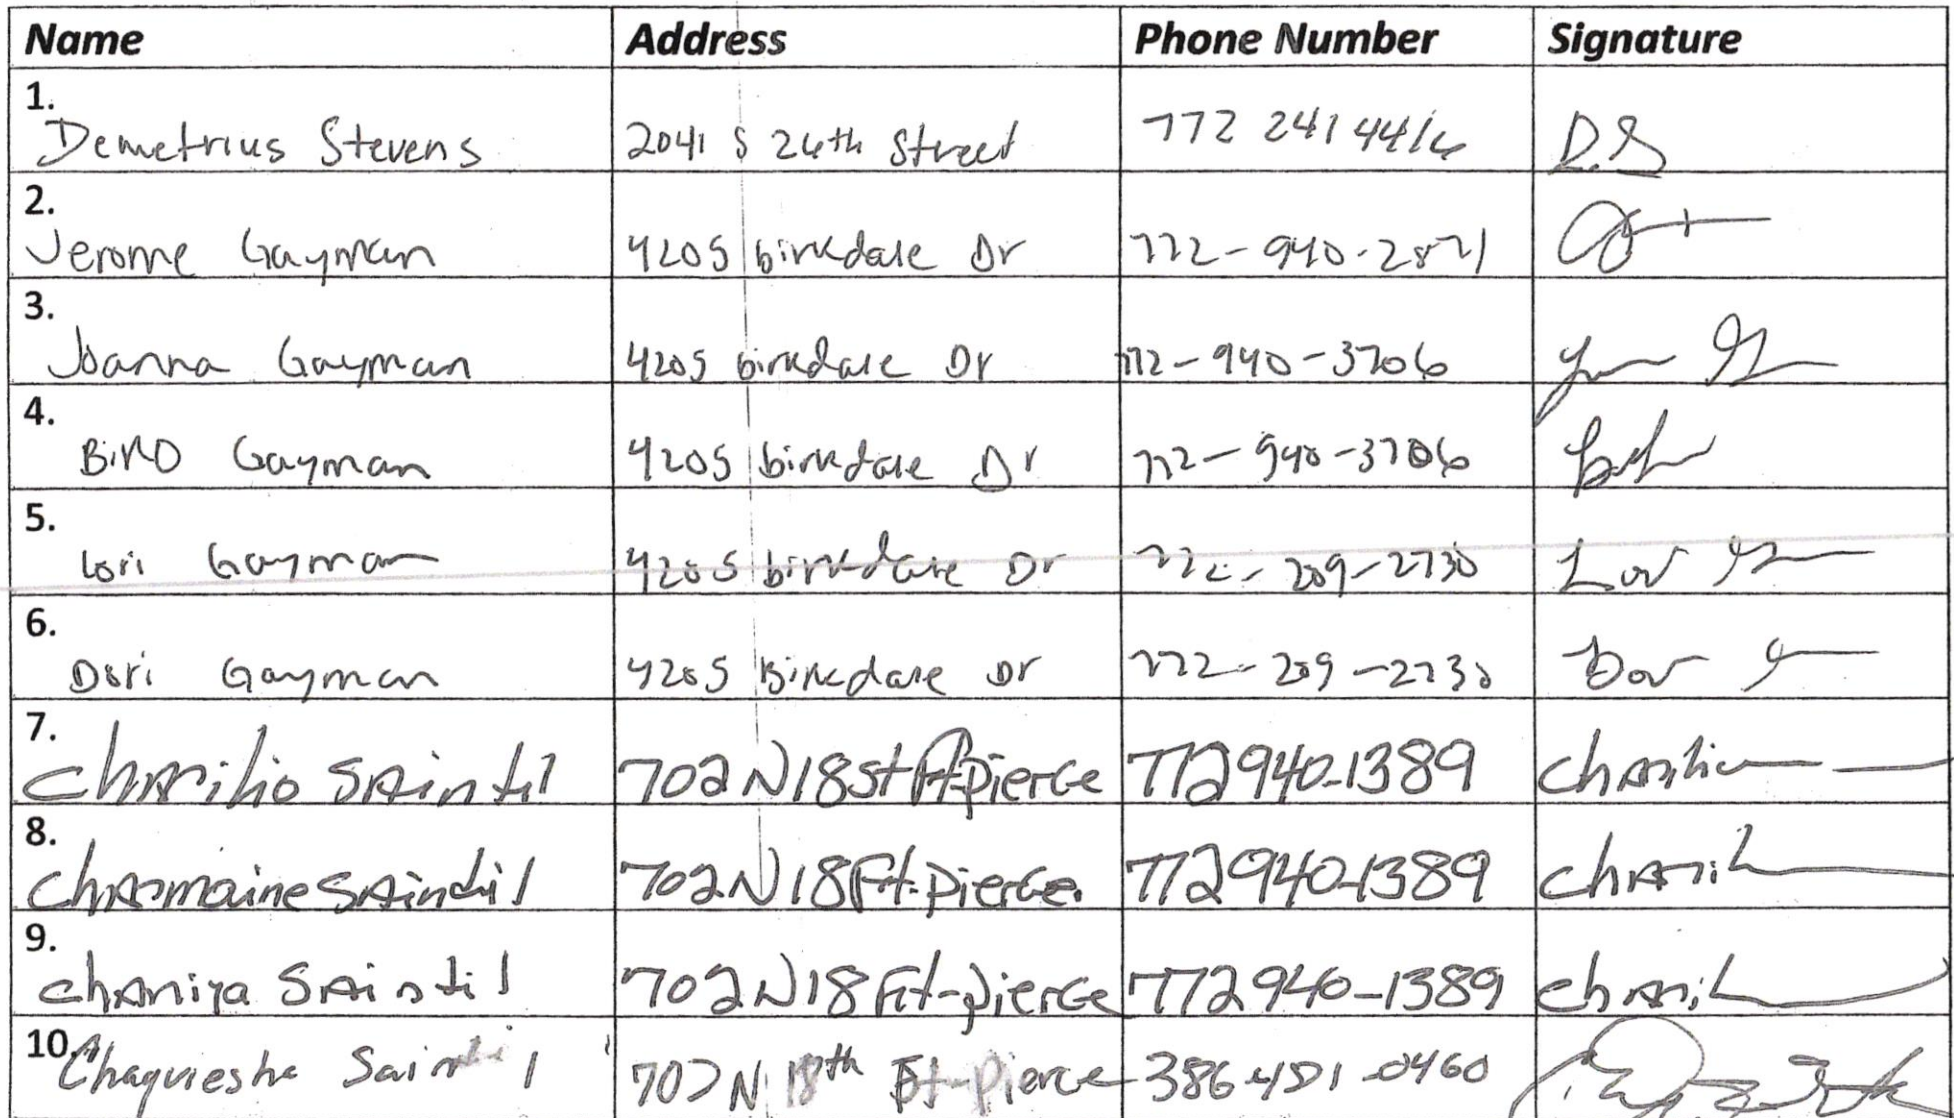 Name Address Phone Number Signature
1. Demetrius Stevens 2041 S 26th Street 772 241 4416 D.S
2. Jerome Gayman 4205 birkdale Dr 772-940-2871
3. Joanna Gayman 4205 birkdale Dr 772-940-3706
4. Gayman 4205 birkdale Dr 772-940-3706
5. Lori Gayman 4205 birkdale Dr 772-209-2730 Lori
6. Dori Gayman 4205 Birkdale Dr 772-209-2730 Dori
7. Charilio SAintil 702 N 18 St Ft-pierce 772940-1389
8. Charmaine SAintil 702 N 18 Ft-pierce 772940-1389
9. chaniya SAintil 702 N 18 Ft-pierce 772940-1389
10. Chaquiesha Saintil 702 N 18th Ft-Pierce 386-451-0460